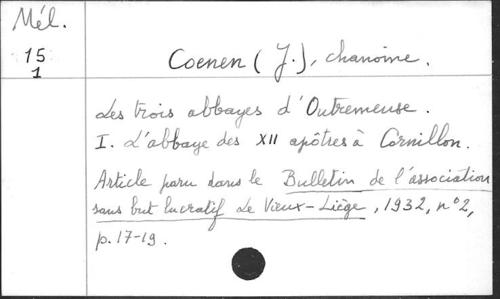 Mél.
15
1
Coenen (J.), chanoine.
Les trois abbayes d'Outremeuse.
I. L'abbaye des XII apôtres à Cornillon.
Article paru dans le Bulletin de l'association
sans but lucratif Le Vieux-Liège, 1932, n°2,
p. 17-19.